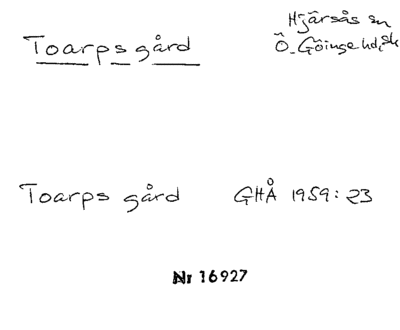 Toarps gård
Hjärsås sn
Ö. Göinge hd, Sk
Toarps gård GHÅ 1959:23
Nr 16927